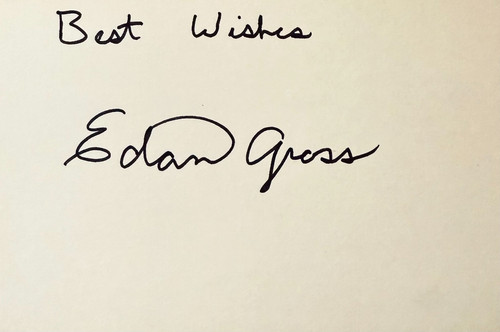 Best Wishes
Edan Gross